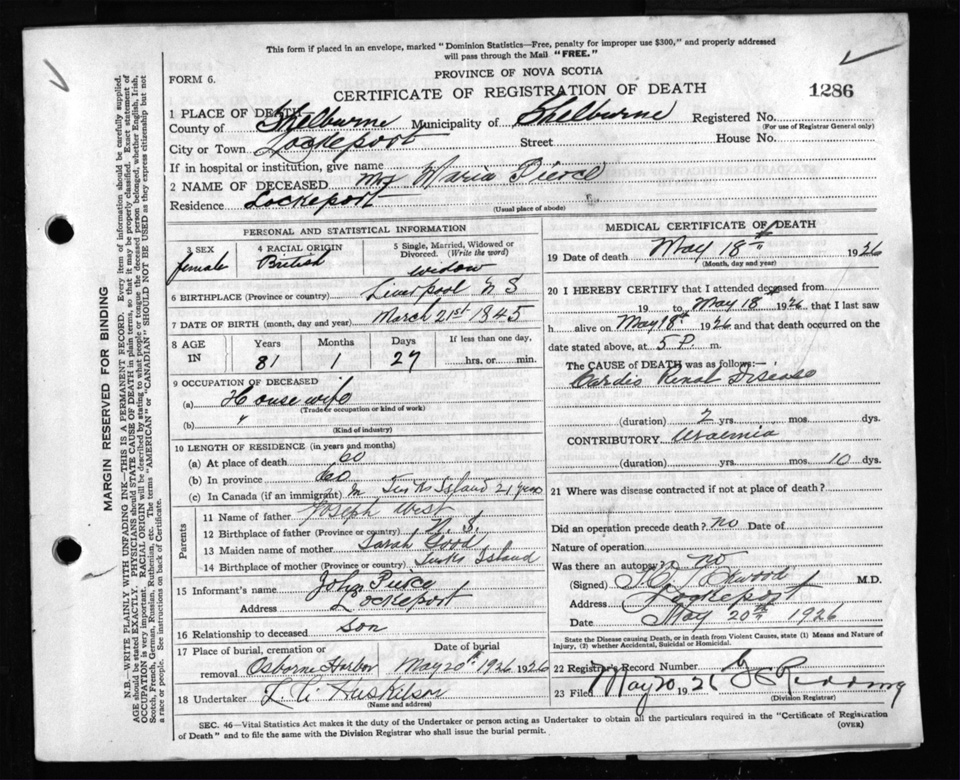 This form if placed in an envelope, marked "Dominion Statistics—Free, penalty for improper use $300," and properly addressed
will pass through the Mail "FREE."
PROVINCE OF NOVA SCOTIA
FORM 6.
CERTIFICATE OF REGISTRATION OF DEATH
1286
1 PLACE OF DEATH—
County of Shelburne Municipality of Shelburne Registered No.
(For use of Registrar General only)
City or Town Lockeport Street House No.
If in hospital or institution, give name
2 NAME OF DECEASED Mrs Maria Pierce
Residence Lockeport
(Usual place of abode)
PERSONAL AND STATISTICAL INFORMATION
3 SEX
female
4 RACIAL ORIGIN
British
5 Single, Married, Widowed or
Divorced. (Write the word)
widow
6 BIRTHPLACE (Province or country) Liverpool N S
7 DATE OF BIRTH (month, day and year) March 21st 1845
8 AGE IN
Years 81
Months 1
Days 27
If less than one day,
hrs. or min.
9 OCCUPATION OF DECEASED
(a) Housewife
(Trade or occupation or kind of work)
(b)
(Kind of industry)
10 LENGTH OF RESIDENCE (in years and months)
(a) At place of death 60
(b) In province 60
(c) In Canada (if an immigrant) In Turks Island 21 years
Parents
11 Name of father Joseph West
12 Birthplace of father (Province or country) N. S.
13 Maiden name of mother Sarah Good
14 Birthplace of mother (Province or country) Turks Island
15 Informant's name John Pierce
Address Lockeport
16 Relationship to deceased son
17 Place of burial, cremation or removal Osborne Harbor
Date of burial
May 20th 1926 1926
18 Undertaker L. A. Huskilson
(Name and address)
MEDICAL CERTIFICATE OF DEATH
19 Date of death May 18th 1926
(Month, day and year)
20 I HEREBY CERTIFY that I attended deceased from
19 to May 18th 1926, that I last saw
h alive on May 18th 1926 and that death occurred on the
date stated above, at 5 P. m.
The CAUSE OF DEATH was as follows:—
Cardio Renal Disease
(duration) 2 yrs. mos. dys.
CONTRIBUTORY Uraemia
(duration) yrs. mos. 10 dys.
21 Where was disease contracted if not at place of death?
Did an operation precede death? no Date of
Nature of operation
Was there an autopsy? no
(Signed) M.D.
Address Lockeport
Date May 20th 1926
State the Disease causing Death, or in death from Violent Causes, state (1) Means and Nature of
Injury, (2) whether Accidental, Suicidal or Homicidal.
22 Registrar's Record Number
23 Filed May 20 192 G Redding
(Division Registrar)
SEC. 46—Vital Statistics Act makes it the duty of the Undertaker or person acting as Undertaker to obtain all the particulars required in the "Certificate of Registration
of Death" and to file the same with the Division Registrar who shall issue the burial permit.
(OVER)
MARGIN RESERVED FOR BINDING
N.B.—WRITE PLAINLY WITH UNFADING INK—THIS IS A PERMANENT RECORD. Every item of information should be carefully supplied.
AGE should be stated EXACTLY. PHYSICIANS should STATE CAUSE OF DEATH in plain terms, so that it may be properly classified. Exact statement of
OCCUPATION is very important. RACIAL ORIGIN will be described by stating to what people or tongue the deceased person belonged, whether English, Irish,
Scotch, French, German, Russian, Ruthenian, etc. The terms "AMERICAN" or "CANADIAN" SHOULD NOT BE USED as they express citizenship but not
a race or people. See instructions on back of Certificate.